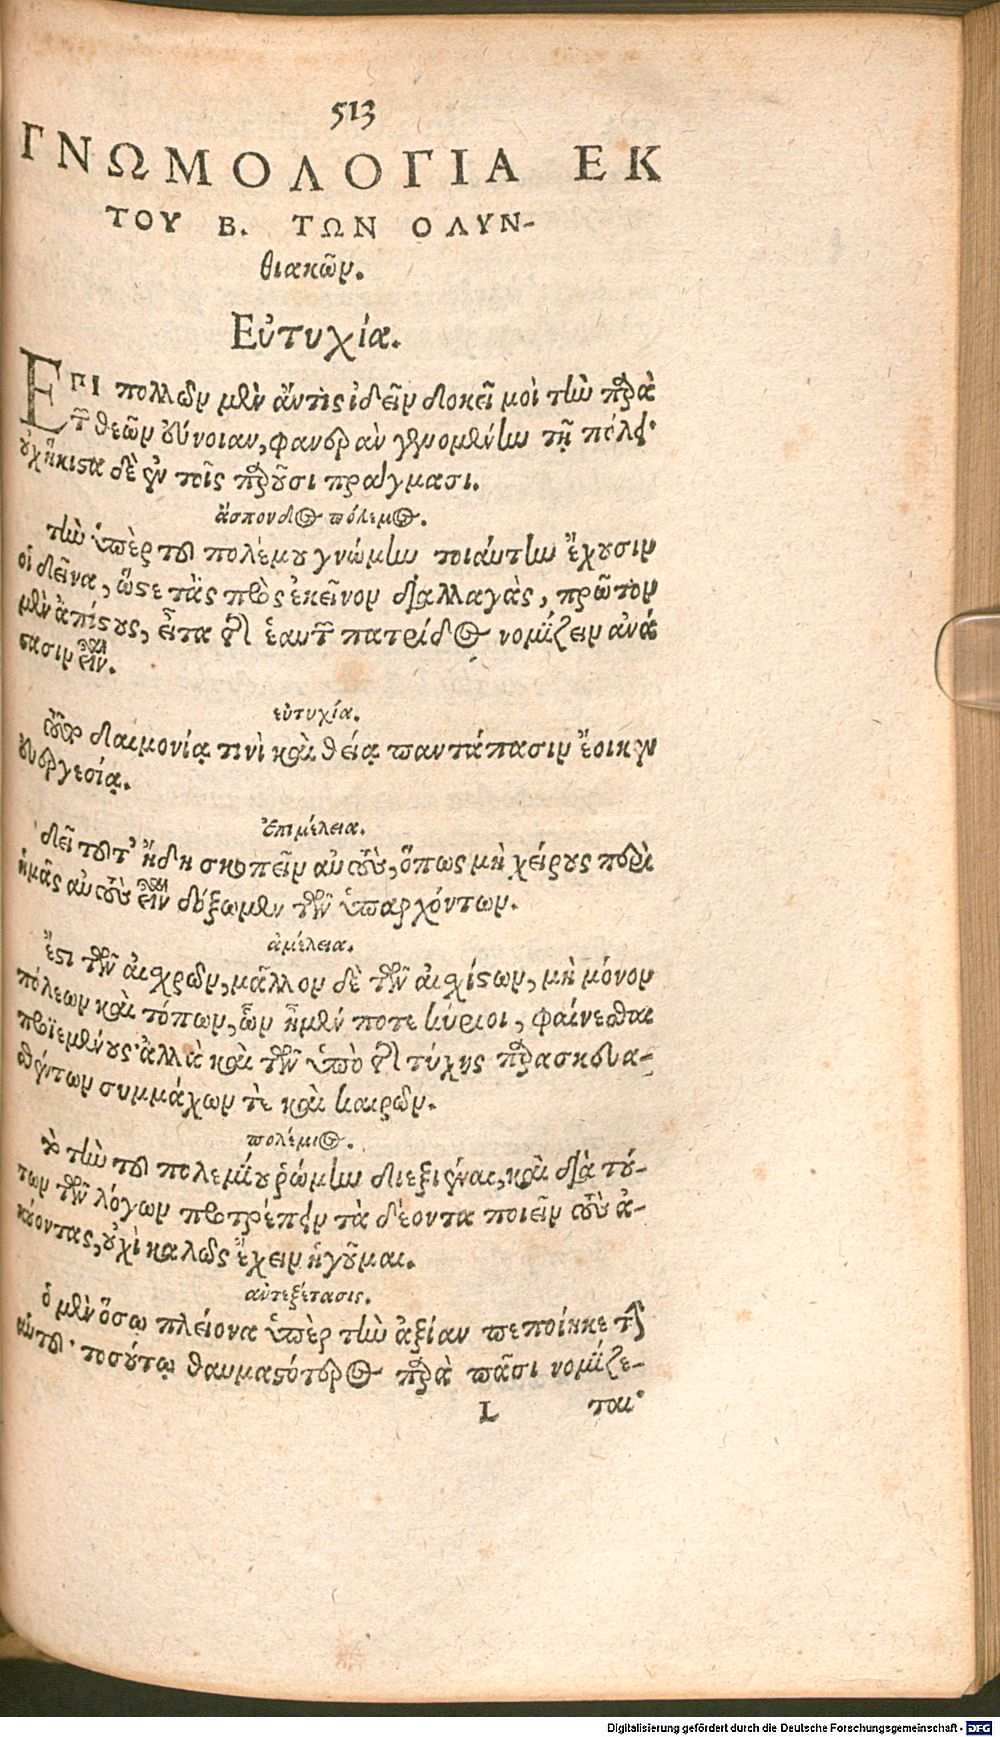 513
ΓΝΩΜΟΛΟΓΙΑ ΕΚ
ΤΟΥ Β. ΤΩΝ ΟΛΥΝ-
θιακῶν.
Εὐτυχία.
ΕΠΙ πολλῶν μὲν ἄν τις ἰδεῖν δοκεῖ μοι τὴν παρὰ
τῶν θεῶν εὔνοιαν, φανερὰν γενομένην τῇ πόλει·
οὐχ ἥκιστα δὲ ἐν τοῖς παροῦσι πράγμασι.
ἄσπονδος πόλεμος.
τὴν ὑπὲρ τοῦ πολέμου γνώμην τοιαύτην ἔχουσιν
οἱ δεῖνα, ὥστε τὰς πρὸς ἐκεῖνον διαλλαγὰς, πρῶτον
μὲν ἀπίστους, εἶτα τῆς ἑαυτῶν πατρίδος νομίζειν ἀνά
στασιν εἶναι.
εὐτυχία.
τοῦτο δαιμονίᾳ τινὶ καὶ θείᾳ παντάπασιν ἔοικεν
εὐεργεσίᾳ.
ἐπιμέλεια.
δεῖ τοῦτ' ἤδη σκοπεῖν αὐτοὺς, ὅπως μὴ χείρους περὶ
ἡμᾶς αὐτοὺς εἶναι δόξωμεν τῶν ὑπαρχόντων.
ἀμέλεια.
ἔστι τῶν αἰσχρῶν, μᾶλλον δὲ τῶν αἰσχίστων, μὴ μόνον
πόλεων καὶ τόπων, ὧν ἦμέν ποτε κύριοι, φαίνεσθαι
προϊεμένους· ἀλλὰ καὶ τῶν ὑπὸ τῆς τύχης παρασκευα-
σθέντων συμμάχων τὲ καὶ καιρῶν.
πολέμιος.
τὸ τὴν τοῦ πολεμίου ῥώμην διεξιέναι, καὶ διὰ τού-
των τῶν λόγων προτρέπειν τὰ δέοντα ποιεῖν τοὺς ἀ-
κούοντας, οὐχὶ καλῶς ἔχειν ἡγοῦμαι.
ἀντεξέτασις.
ὁ μὲν ὅσῳ πλείονα ὑπὲρ τὴν ἀξίαν πεποίηκε τὴν
αὐτοῦ· τοσούτῳ θαυμαστότερος παρὰ πᾶσι νομίζε-
L ται·
Digitalisierung gefördert durch die Deutsche Forschungsgemeinschaft - DFG